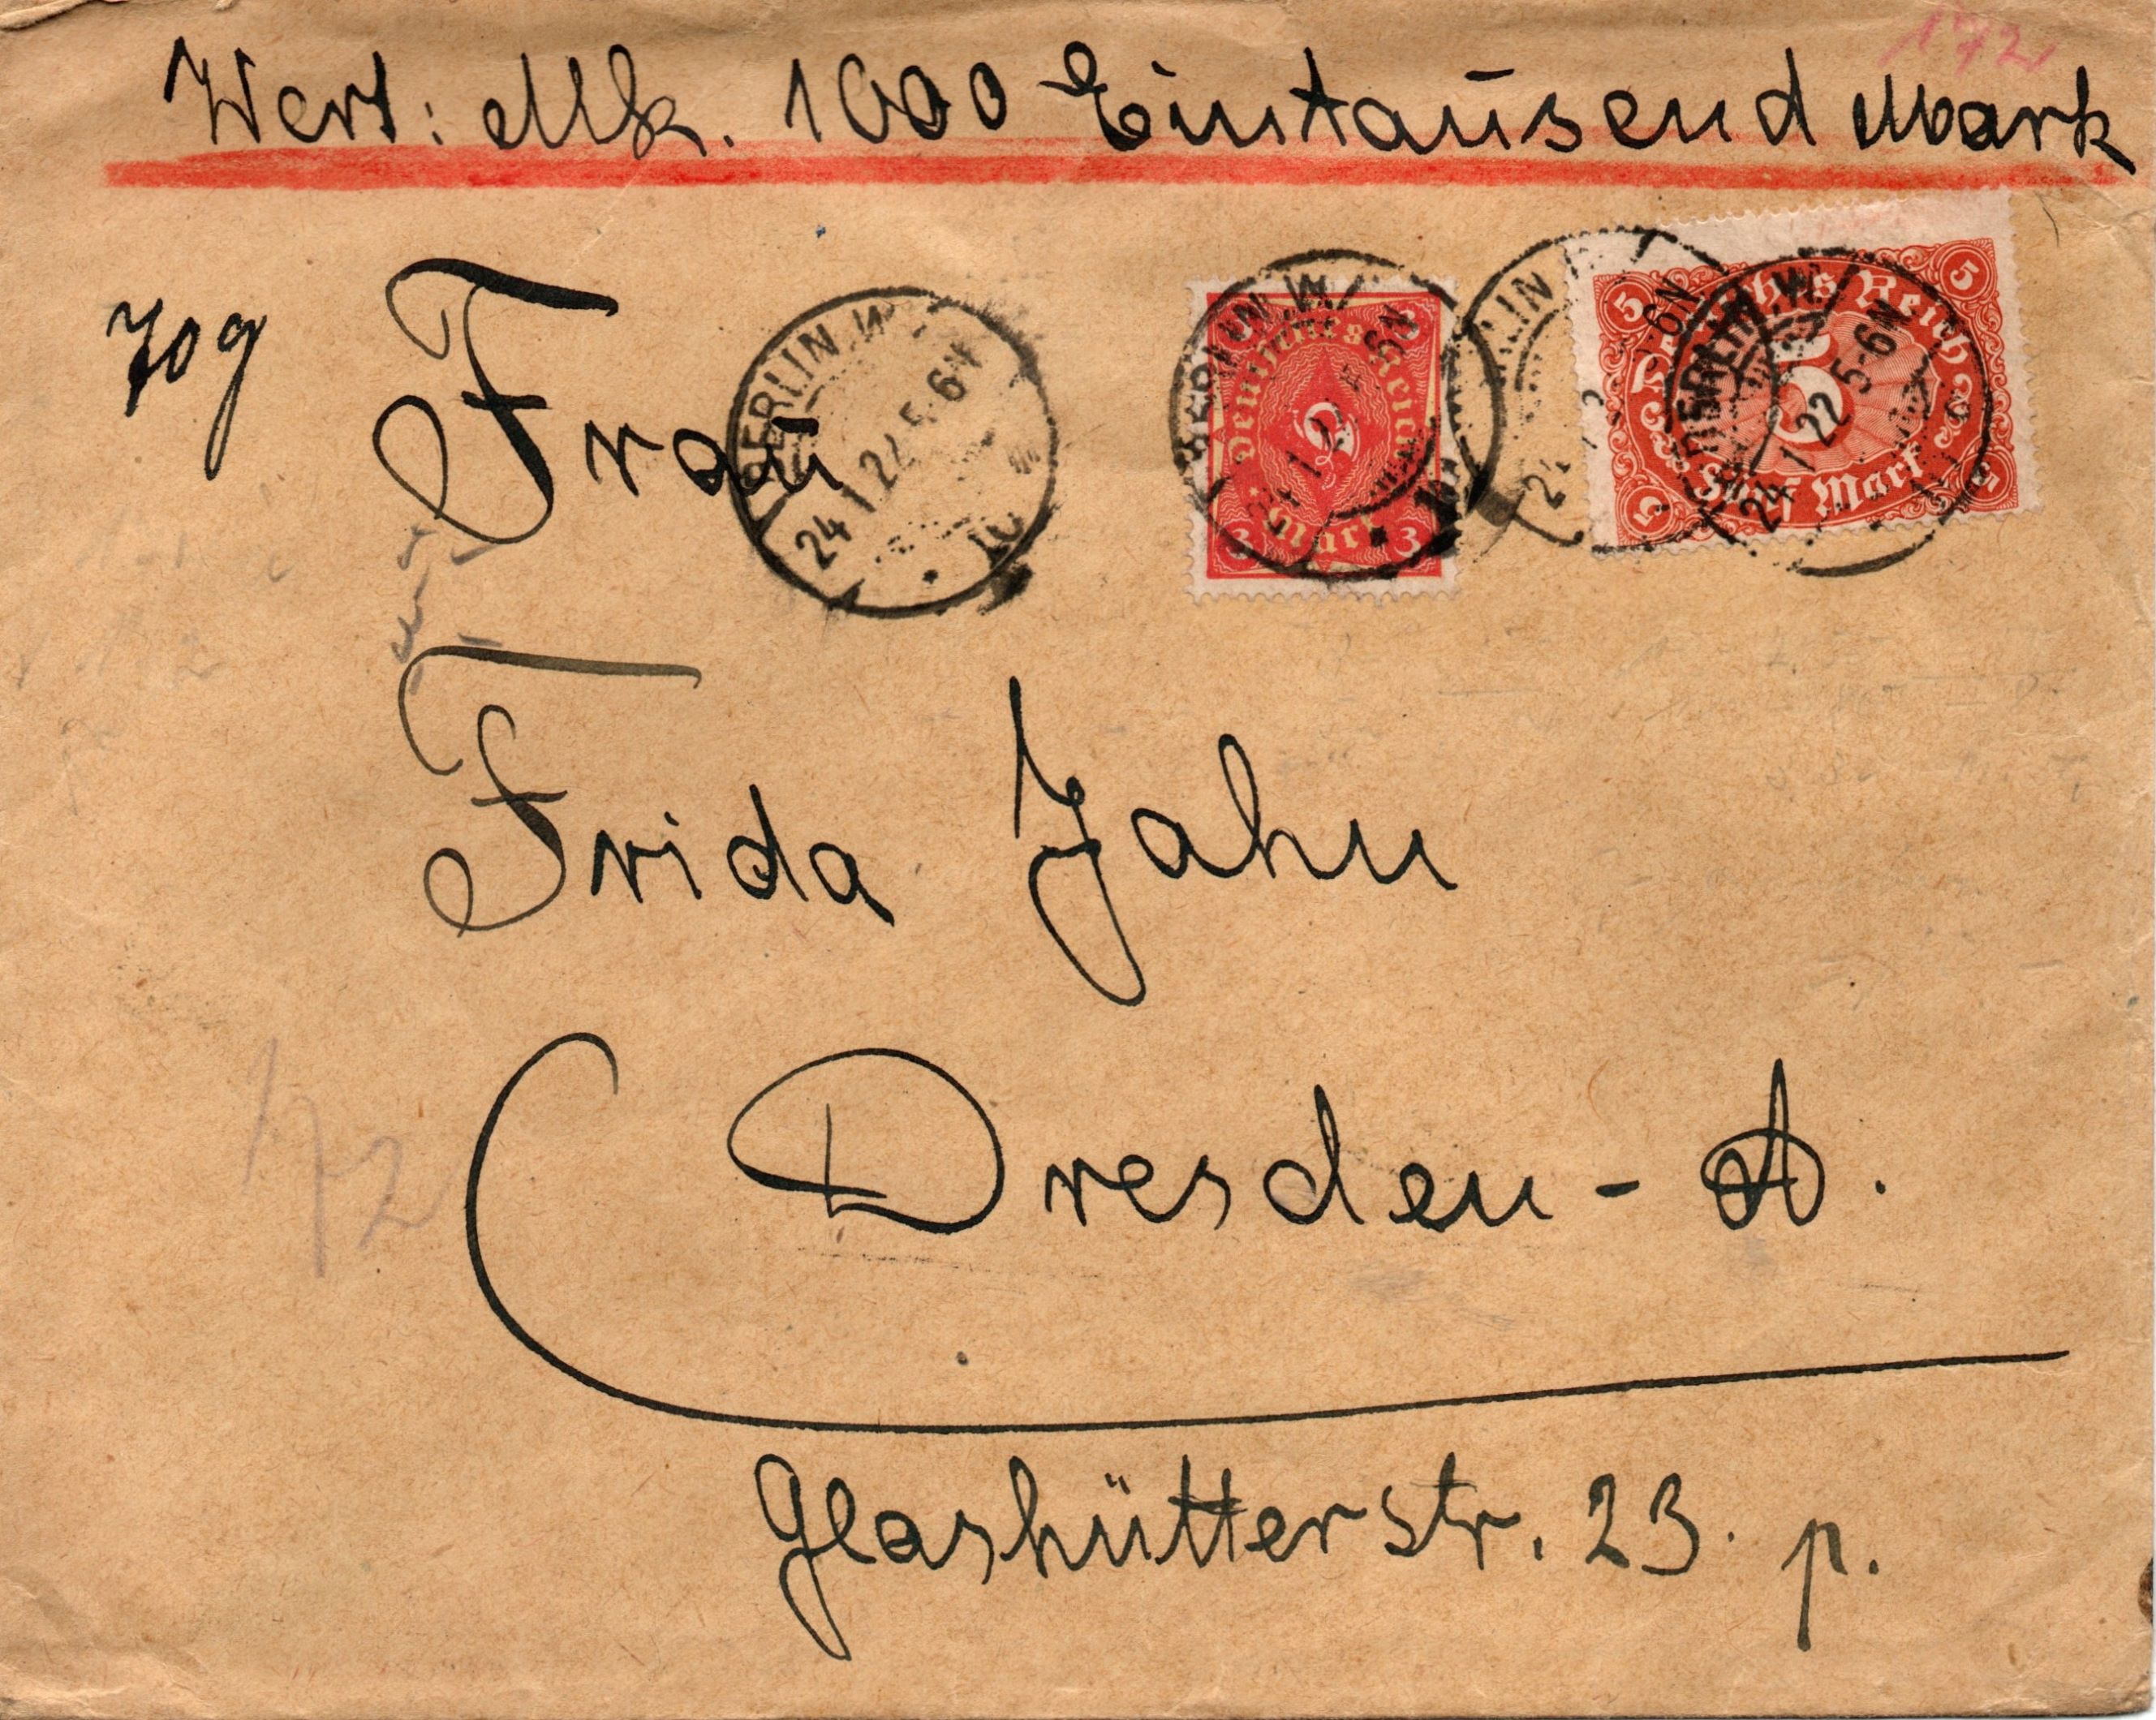 172
Wert: Mk. 1000 Eintausend Mark
70g
Frau
BERLIN.W.
24.1.22.5-6N
Deutsches Reich
3
Mark
3
BERLIN.W.
24.1.22 5-6N
Deutsches Reich
5
Fünf Mark
Frida Jahn
172
Dresden-A.
Glashütterstr. 23. p.